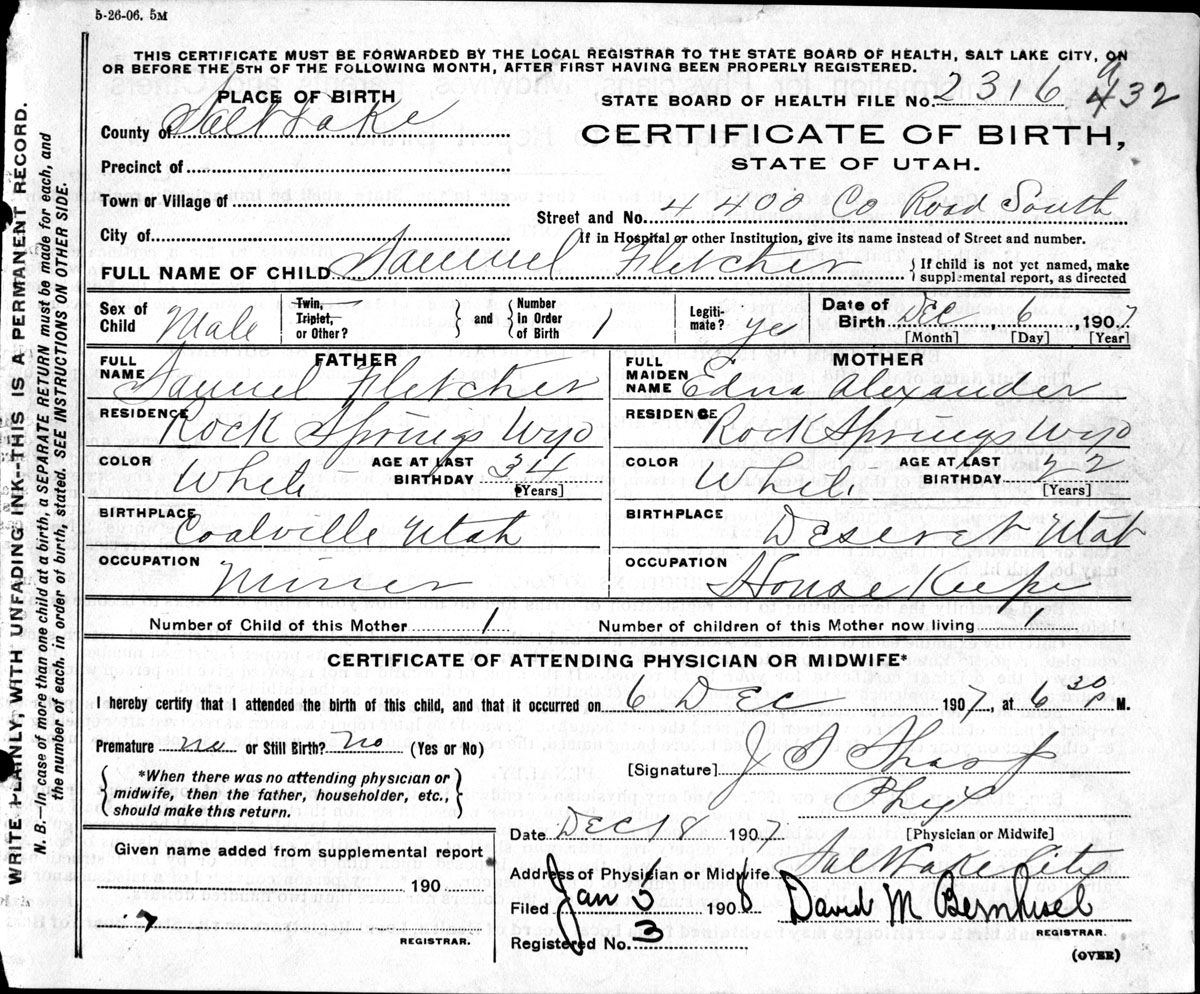 5-26-06. 5M
THIS CERTIFICATE MUST BE FORWARDED BY THE LOCAL REGISTRAR TO THE STATE BOARD OF HEALTH, SALT LAKE CITY, ON
OR BEFORE THE 5TH OF THE FOLLOWING MONTH, AFTER FIRST HAVING BEEN PROPERLY REGISTERED.
PLACE OF BIRTH
STATE BOARD OF HEALTH FILE No. 2316 432
County of Salt Lake
CERTIFICATE OF BIRTH,
STATE OF UTAH.
Precinct of
Town or Village of
Street and No. 4400 Co Road South
City of
If in Hospital or other Institution, give its name instead of Street and number.
FULL NAME OF CHILD Samuel Fletcher { If child is not yet named, make
supplemental report, as directed
Sex of Child Male
Twin, Triplet, or Other? } and { Number in Order of Birth 1
Legiti-mate? yes
Date of Birth Dec, 6, 1907
[Month] [Day] [Year]
FATHER
FULL NAME Samuel Fletcher
RESIDENCE Rock Springs Wyo
COLOR White AGE AT LAST BIRTHDAY 34 [Years]
BIRTHPLACE Coalville Utah
OCCUPATION Miner
MOTHER
FULL MAIDEN NAME Edna Alexander
RESIDENCE Rock Springs Wyo
COLOR White AGE AT LAST BIRTHDAY 22 [Years]
BIRTHPLACE Deseret Utah
OCCUPATION House Keeper
Number of Child of this Mother 1 Number of children of this Mother now living 1
CERTIFICATE OF ATTENDING PHYSICIAN OR MIDWIFE*
I hereby certify that I attended the birth of this child, and that it occurred on 6 Dec 1907, at 6 30 P M.
Premature no or Still Birth? no (Yes or No)
{ *When there was no attending physician or
midwife, then the father, householder, etc.,
should make this return. }
[Signature] J S Sharp
Phy
[Physician or Midwife]
Date Dec 18 1907
Given name added from supplemental report
190
REGISTRAR.
Address of Physician or Midwife Salt Lake City
Filed Jan 3 1908 David M Bernhisel
REGISTRAR.
Registered No. 3
(OVER)
WRITE PLAINLY, WITH UNFADING INK--THIS IS A PERMANENT RECORD.
N. B.—In case of more than one child at a birth, a SEPARATE RETURN must be made for each, and
the number of each, in order of birth, stated. SEE INSTRUCTIONS ON OTHER SIDE.